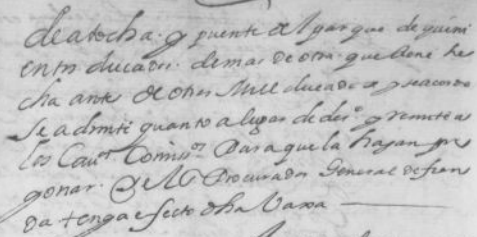 de atocha. y puente del parque de quini
entos ducados. demas de otra que tiene he
cha antes de otros Mill ducados y se acordo
se admite quanto a lugar de dro. y remite a
los Cavos. Comisos. Para que la hagan pre
gonar. Y el Procurador General defien
da tenga efecto dha Vaxa